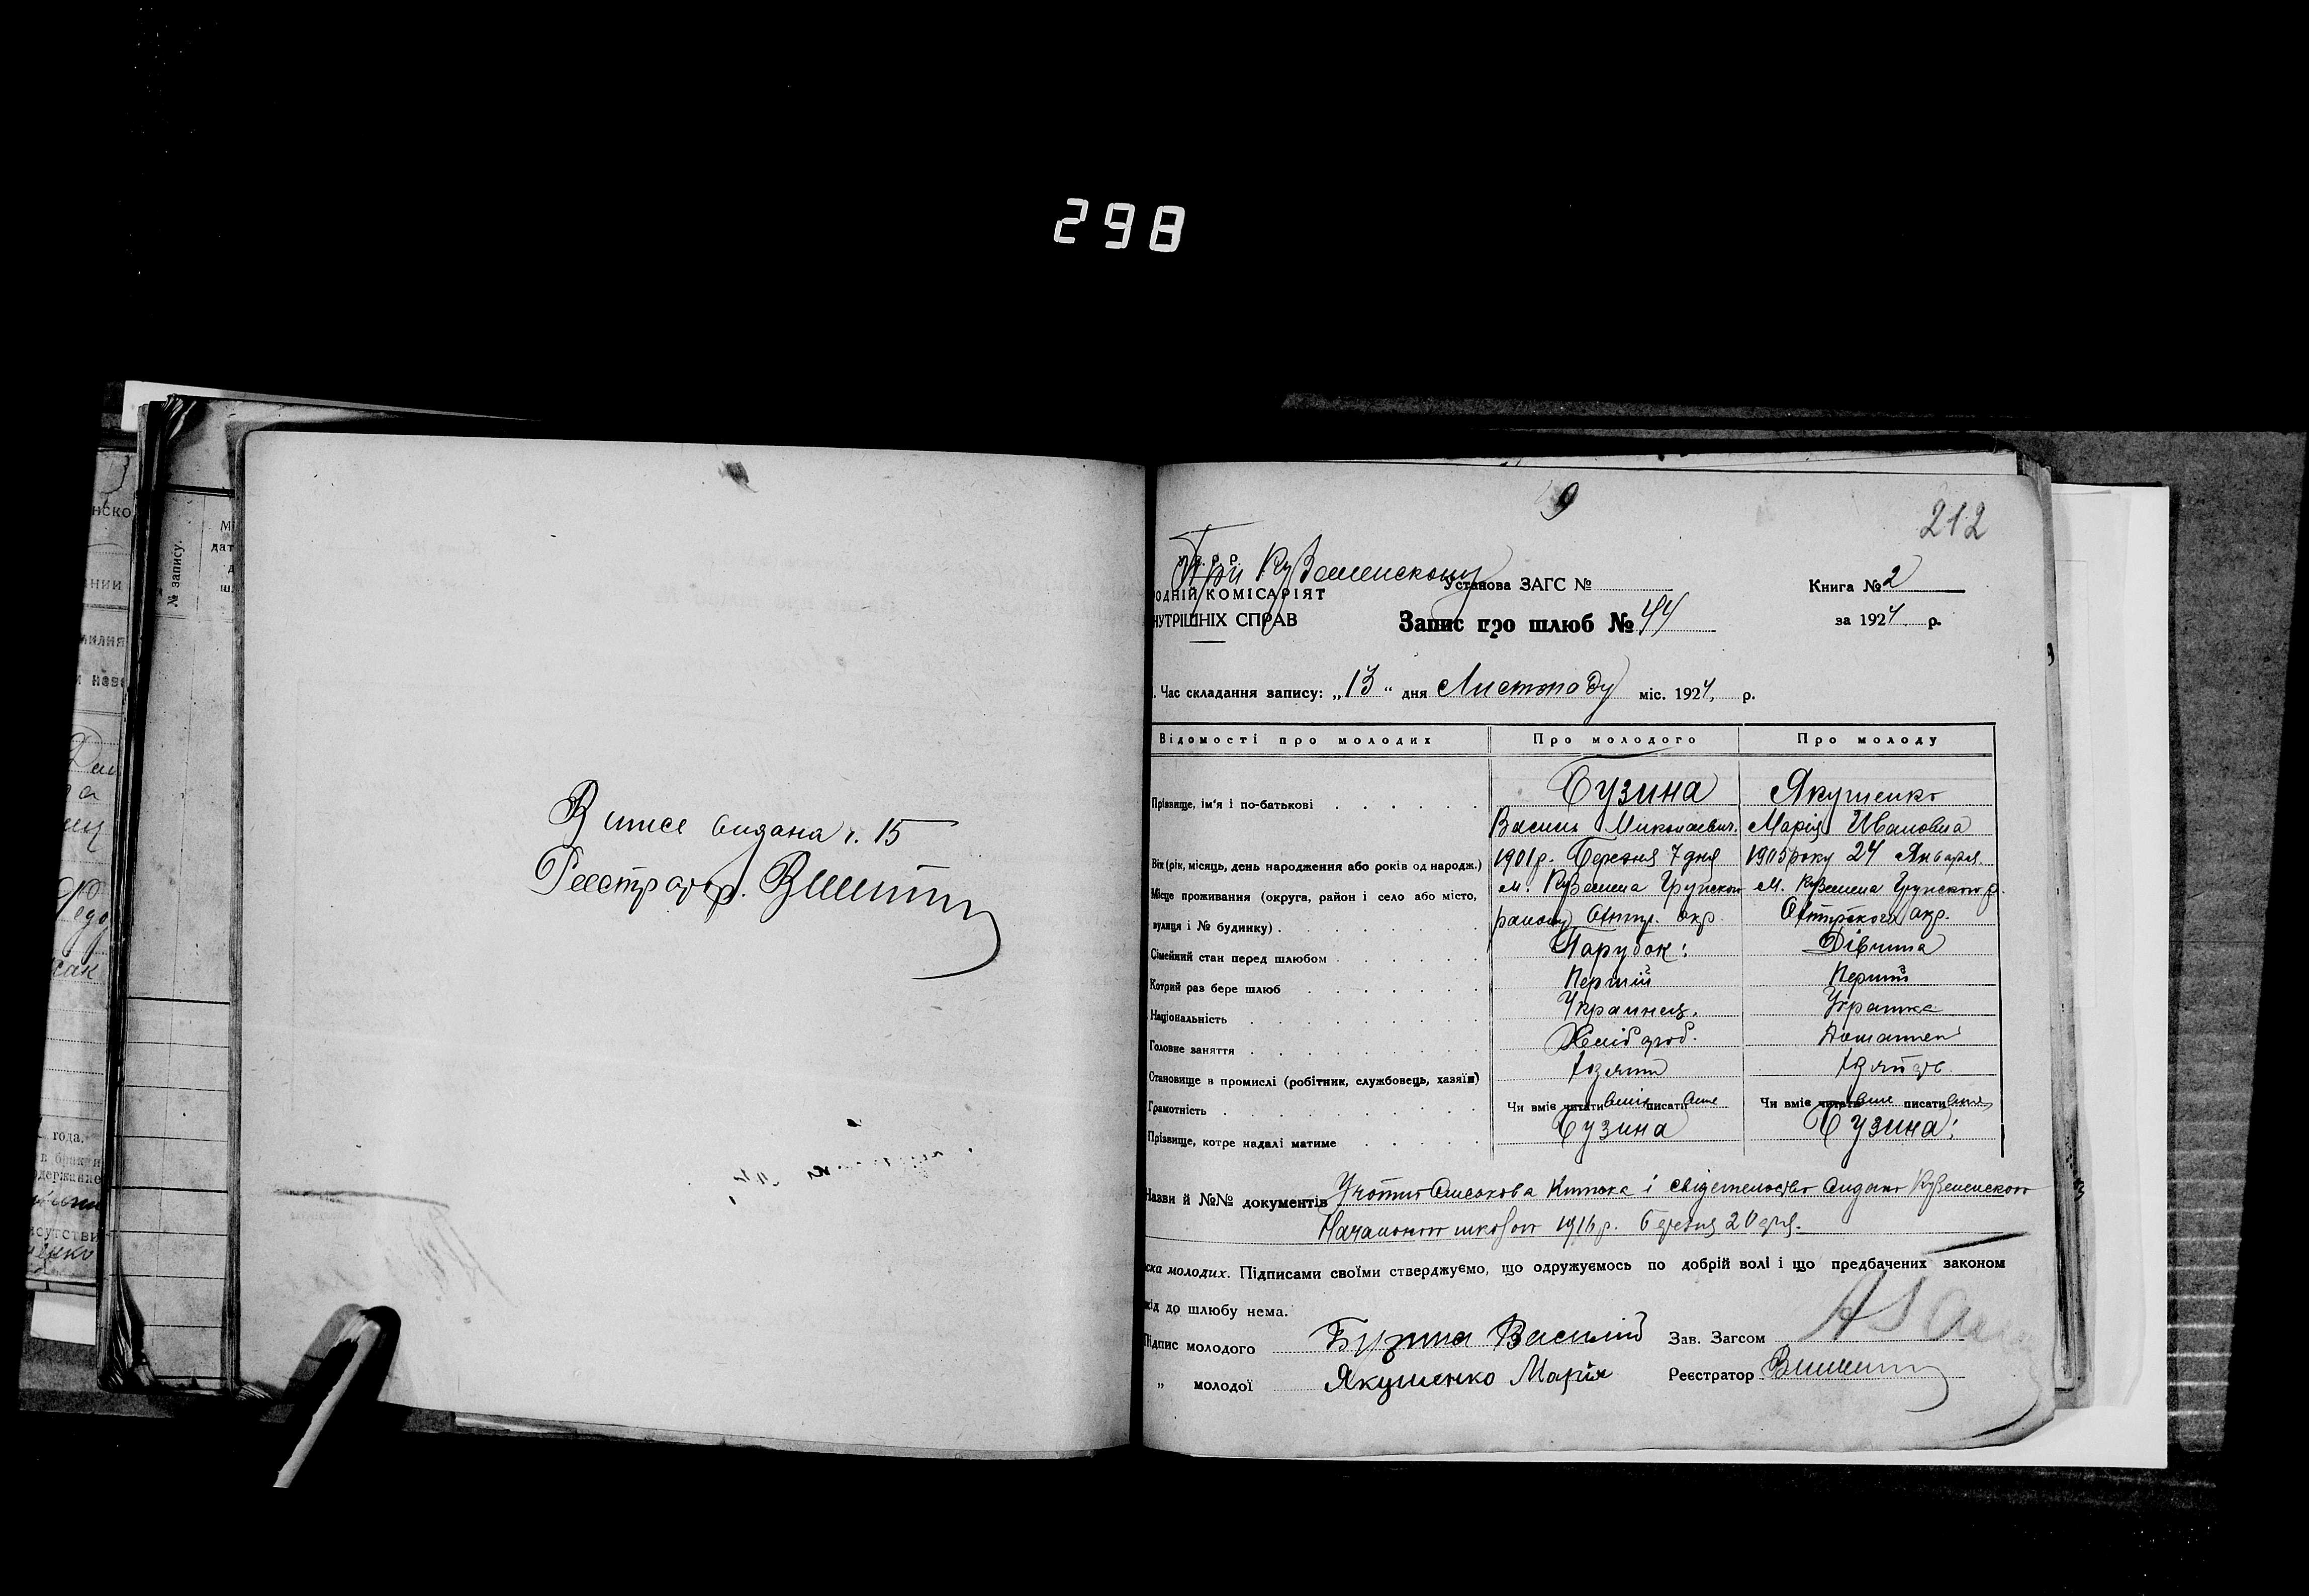 298
Виписе видана ч. 15
Реєстратор.
9
212
При Куземенскому
ОДНІЙ КОМІСАРІЯТ
НУТРІШНІХ СПРАВ
Установа ЗАГС №
Книга № 2
Запис про шлюб № 44
за 1924 р.
Час складання запису: „13“ дня Листопаду міс. 1924, р.
Відомості про молодих Про молодого Про молоду
Прізвище, ім'я і по-батькові Бузина Якушенко
Василь Миколаевич. Марія Ивановна
Вік (рік, місяць, день народження або років од народж.) 1901р. Березня 7 дня 1905 року 24 Января
Місце проживання (округа, район і село або місто, м. Куземена Грунского м. Куземена Грунского р.
вулиця і № будинку) району Охтир. окр. Охтирского окр.
Сімейний стан перед шлюбом Парубок: Дівчина
Котрий раз бере шлюб Першій Першій
Національність Украинец. Украинка
Головне заняття Хлібороб.
Становище в промислі (робітник, службовець, хазяїн)
Грамотність Чи вміє читати вміє писати вміє Чи вміє читати вміє писати вміє
Прізвище, котре надалі матиме Бузина Бузина:
Назви й №№ документів Учотно Книжка і свідетельство видано Куземенскою
школою 1916 р. 20 дня.
ска молодих. Підписами своїми стверджуємо, що одружуємось по добрій волі і що предбачених законом
кід до шлюбу нема.
Підпис молодого Бузина Василий Зав. Загсом
„ молодої Якушенко Марія Реєстратор
№ запису.
года.